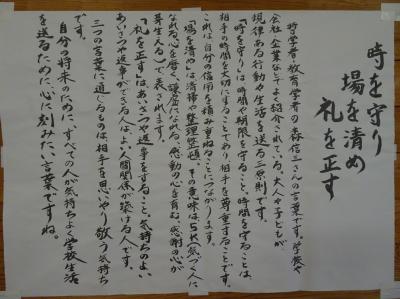 時を守り
場を清め
礼を正す
哲学者・教育学者の森信三さんの言葉です。学校や
会社・企業などでよく紹介されている。大人や子どもが
規律ある行動や生活を送る三原則です。
「時を守り」は、時間や期限を守ること、時間を守ることは、
相手の時間を大切にすることであり、相手を尊重することです。
これは、自分の信用を積み重ねることにつながります。
「場を清め」は、清掃や整理整頓。その意味は、5K(気づく人に
なれる、心を磨く、謙虚になれる、感動の心を育む、感謝の心が
芽生える)で表されます。
「礼を正す」はあいさつや返事をすること、気持ちのよい
あいさつや返事ができる人は、よい人間関係が築ける人です。
三つの言葉に通じるものは、相手を思いやり敬う気持ち
です。
自分の将来のために、すべての人が気持ちよく学校生活
を送るために心に刻みたい言葉ですね。